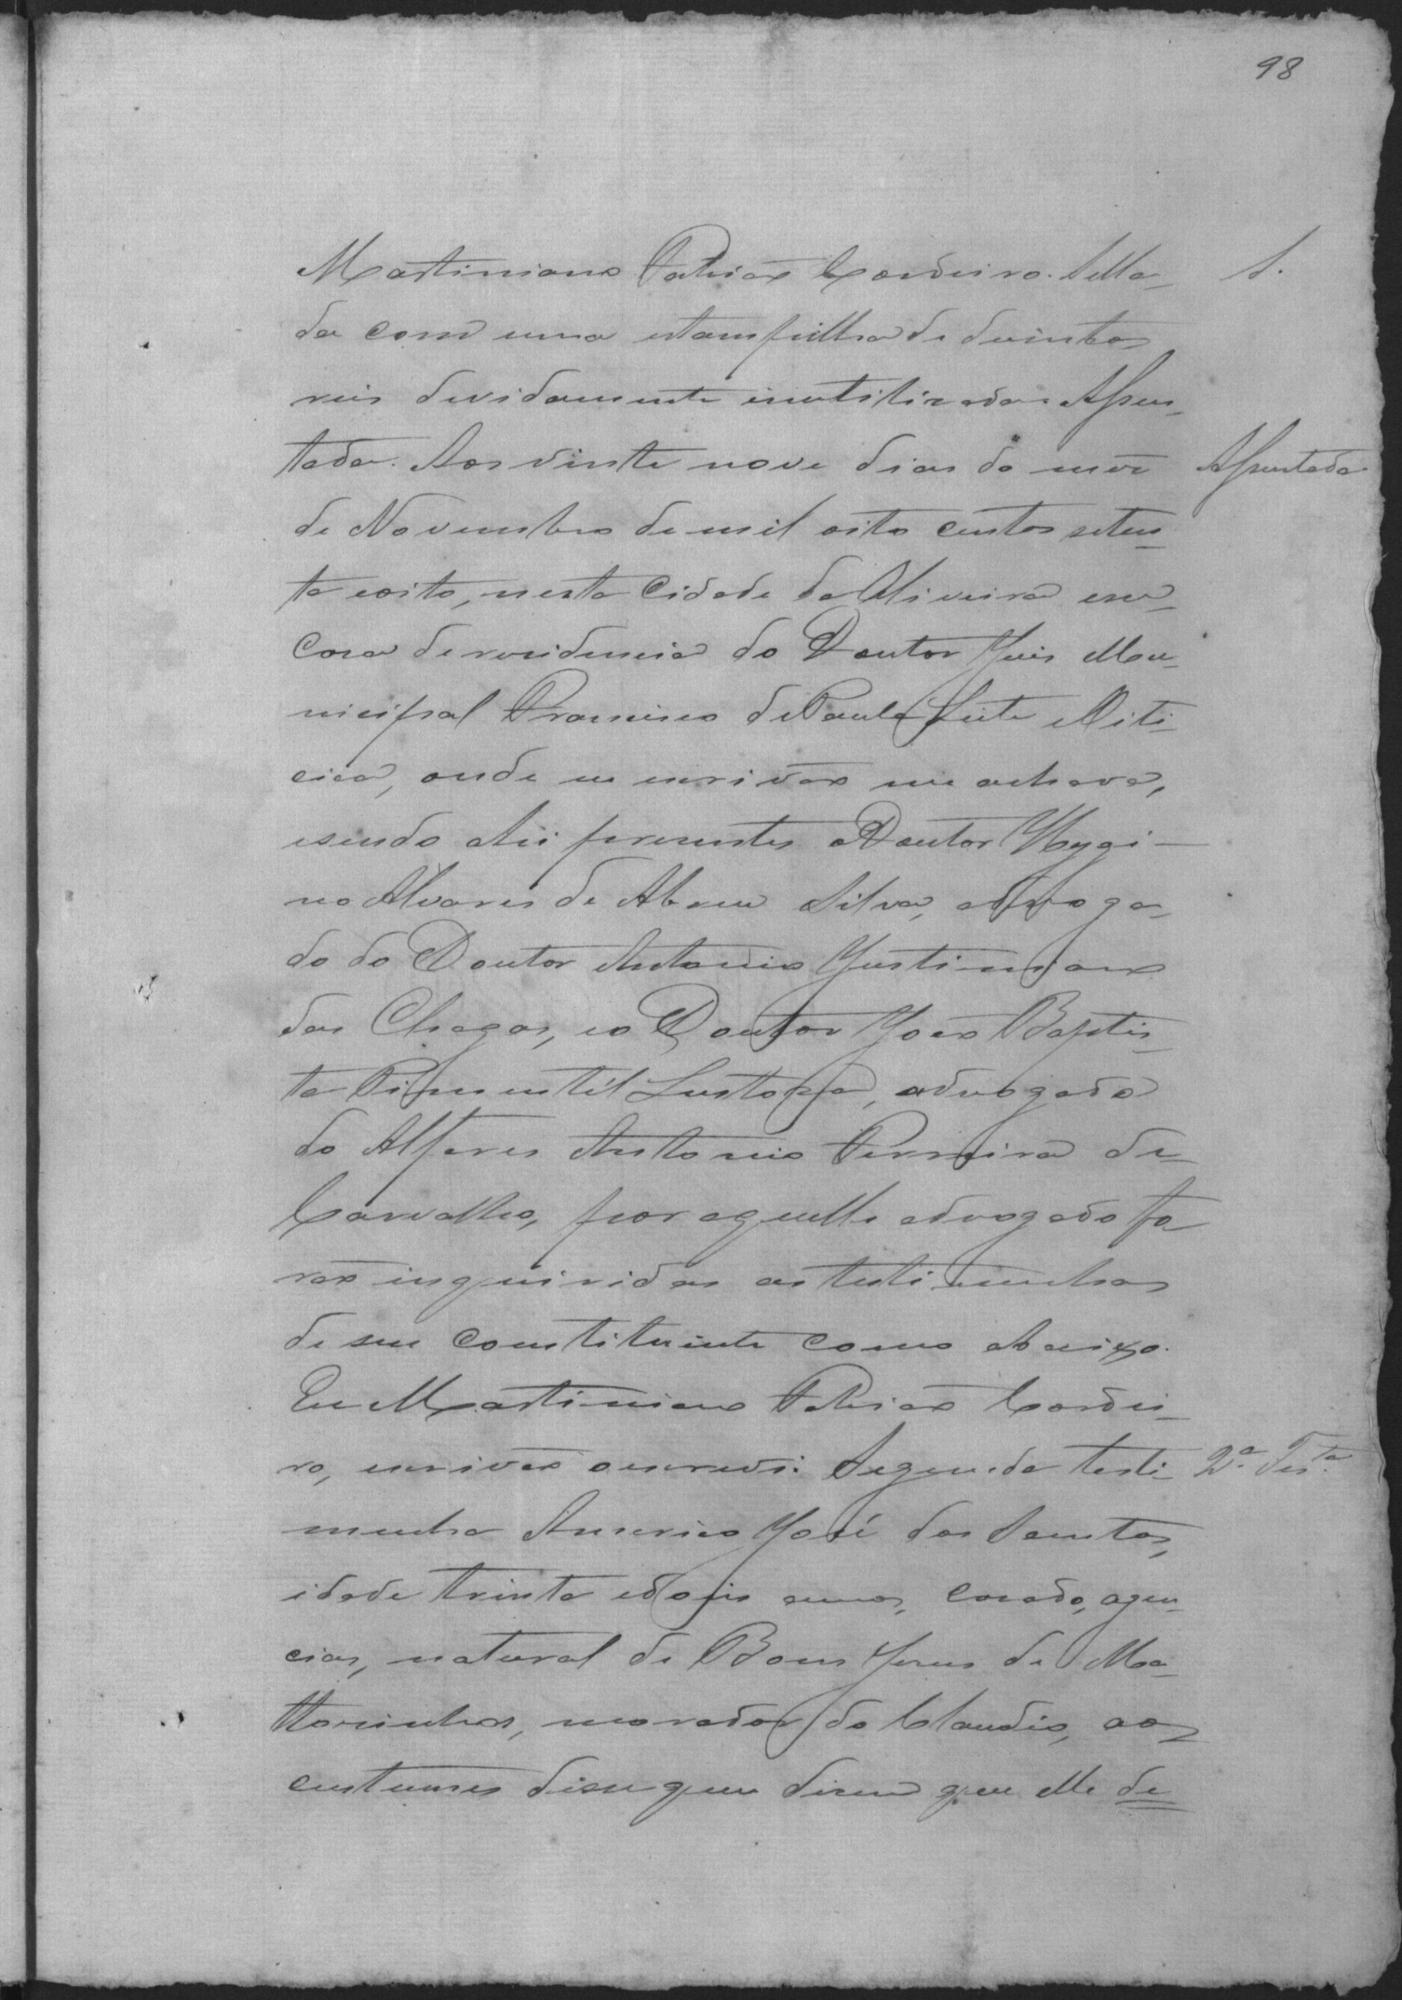 98
Martiniano Patricio Cordeiro. Sella- S.
da com uma estampilha de duzentos
reis devidamente inutilizada. Assen-
tada. Aos vinte nove dias do mez Assentada
de Novembro de mil oito centos seten-
ta e oito, nesta Cidade da Oliveira em
Casa de residencia do Doutor Juis Mu-
nicipal Francisco de Paula Leite e Oiti-
cica, onde eu escrivão me achava,
e sendo Ahi presentes o Doutor Hygi-
no Alvares de Abreu Silva, advoga-
do do Doutor Antonio Justiniano
das Chagas, e o Doutor João Baptis-
ta Pimentél Lustosa, advogado
do Alferes Antonio Ferreira de
Carvalho, por aquelle advogado fo-
rão inqueridas as testimunhas
de seu constituinte como abaixo.
Eu Martiniano Patricio Cordei-
ro, escrivão o escrevi. Segunda testi- 2ª Testª
munha Americo José dos Santos,
idade trinta e dois annos, casado, agen-
cias, natural de Bom Jesus de Ma-
ttosinhos, morador do Claudio, aos
custumes disse que dizem que elle de